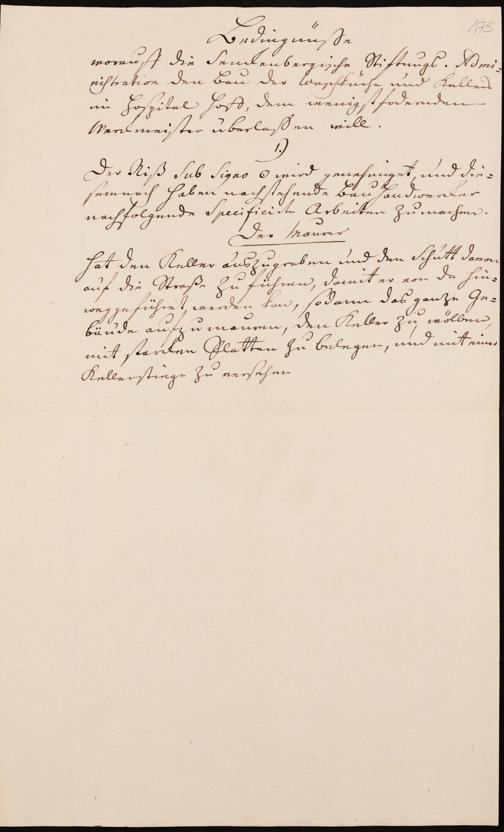 175
Bedingnüße
worauf die Senckenbergische Stiftungs-Admi-
nistration den Bau der Waschküche und Kellers
im Hospital Hof, dem wenigstfodernden
Werckmeister überlaßen will.
1.)
Der Riß Sub Signo ☉ wird genehmiget, und die-
semnach haben nachstehende Bau Handwercker
nachfolgende Specificirte Arbeiten zu machen.
Der Maurer
hat den Keller auszugraben und den Schutt davon
auf die Straße zu führen, damit er von da hin-
weggeführet werden kan, sodann das ganze Ge-
bäude aufzumauren, den Keller zu wölben,
mit starken Platten zu belegen, und mit einer
Kellerstiege zu versehen